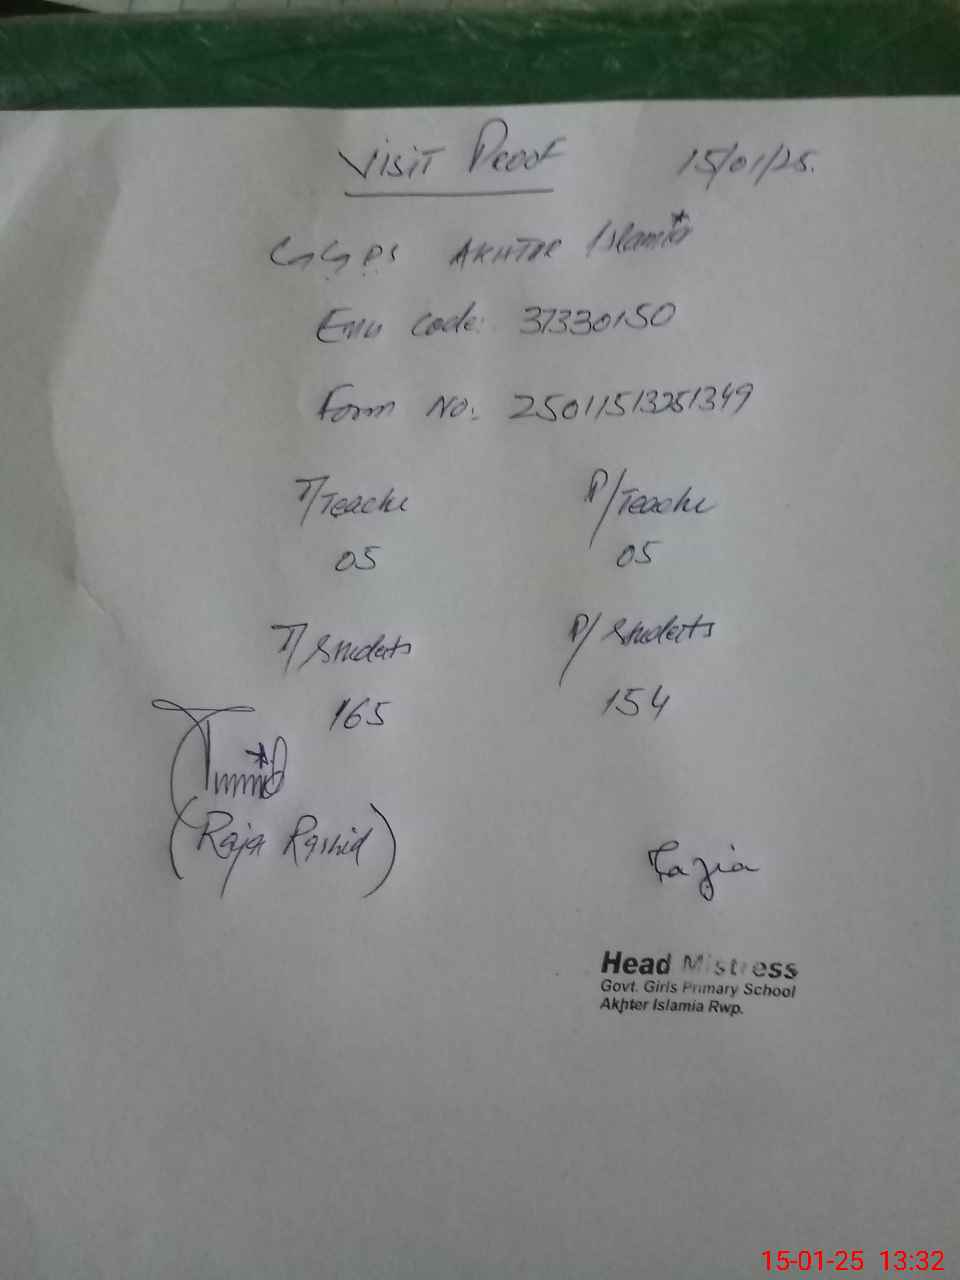 Visit Proof 15/01/25.
GGPS AKHTER Islamia
Emis Code: 37330150
Form No: 25011513251349
T/Teache P/Teache
05 05
T/Students P/Students
165 154
(Raja Rashid)
Fazia
Head Mistress
Govt. Girls Primary School
Akhter Islamia Rwp.
15-01-25 13:32